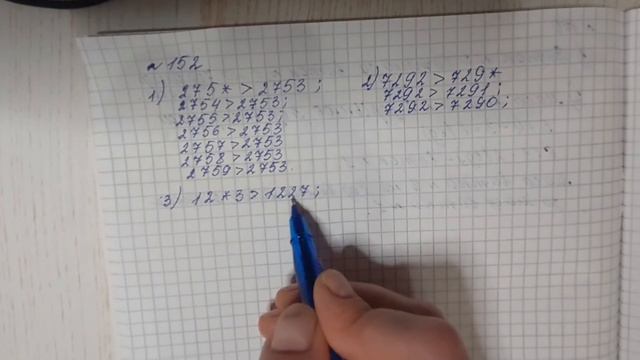 № 152.
1) 275* > 2753;
2754 > 2753;
2755 > 2753;
2756 > 2753
2757 > 2753
2758 > 2753
2759 > 2753.
2) 7292 > 729*
7292 > 7291;
7292 > 7290;
3) 12*3 > 1227;